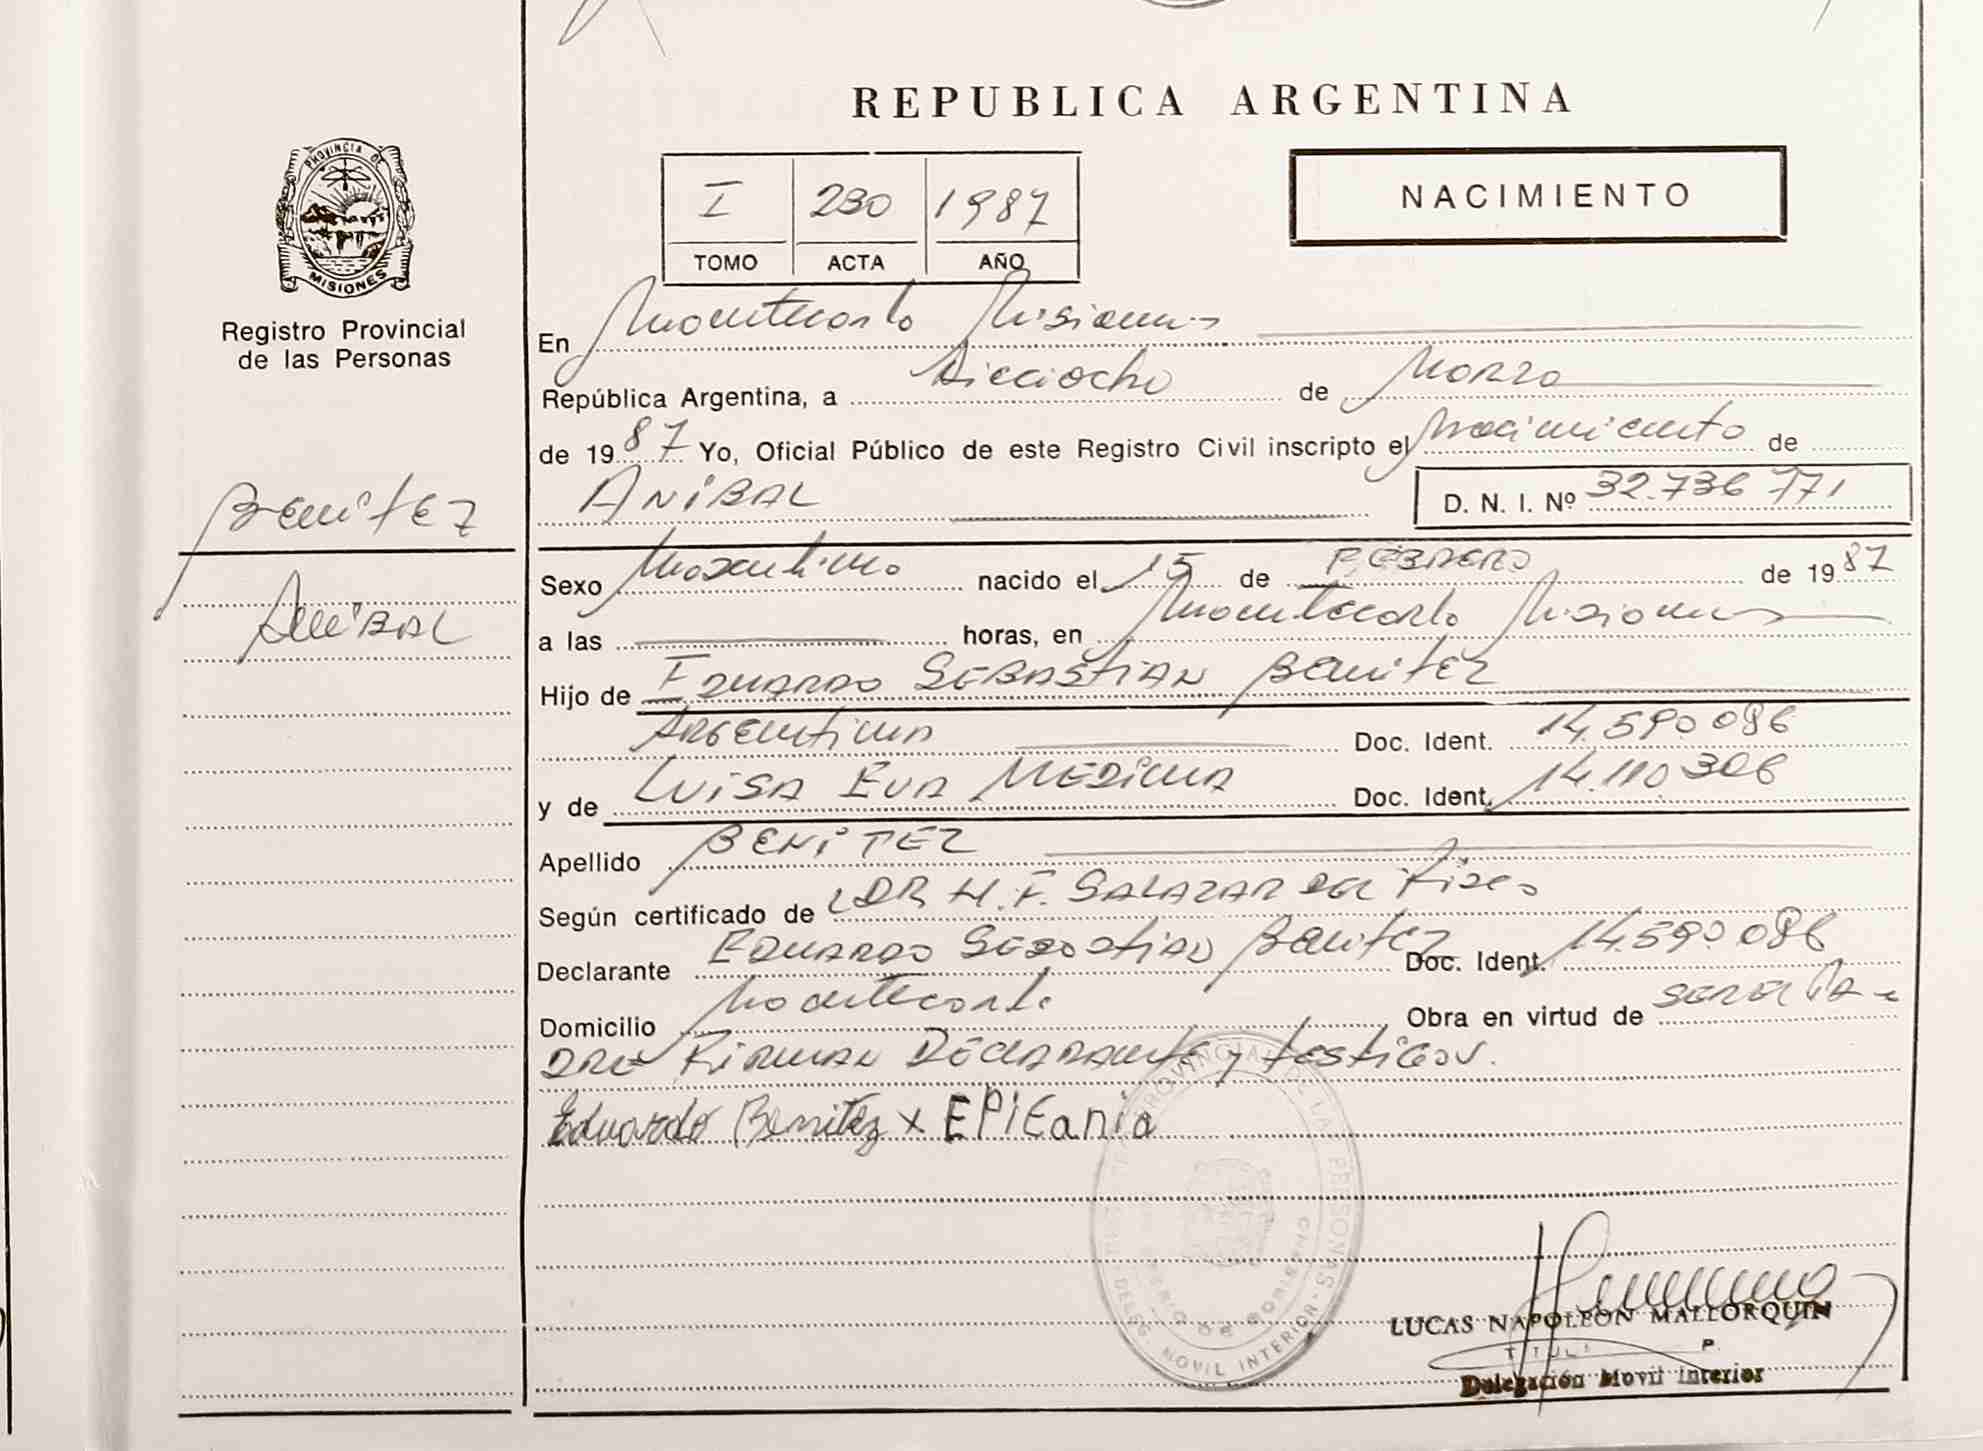 REPUBLICA ARGENTINA
PROVINCIA DE
MISIONES
Registro Provincial
de las Personas
Benitez
Anibal
I 230 1987
TOMO ACTA AÑO
NACIMIENTO
En Montecarlo Misiones
República Argentina, a dieciocho de Marzo
de 1987 Yo, Oficial Público de este Registro Civil inscripto el Nacimiento de
ANiBAL D. N. I. Nº 32.736 771
Sexo Masculino nacido el 15 de FEBRERO de 1987
a las horas, en Montecarlo Misiones
Hijo de EDUARDO SEBASTIAN Benitez
Argentina Doc. Ident. 14.590 086
y de LUiSA EVA MEDiNA Doc. Ident. 14.110 306
Apellido BENiTEZ
Según certificado de DR H. F. SALAZAR DEL
Declarante EDUARDO SEBASTIAN Benitez Doc. Ident. 14.590 086
Domicilio Montecarlo Obra en virtud de
FIRMAN DECLARANTE y testigos.
Eduardo Benitez x EPiEania
PROVINCIAL DE LAS PERSONAS
DELEG. MOVIL INTERIOR
DE GOBIERNO
LUCAS NAPOLEON MALLORQUIN
Delegación Movil Interior